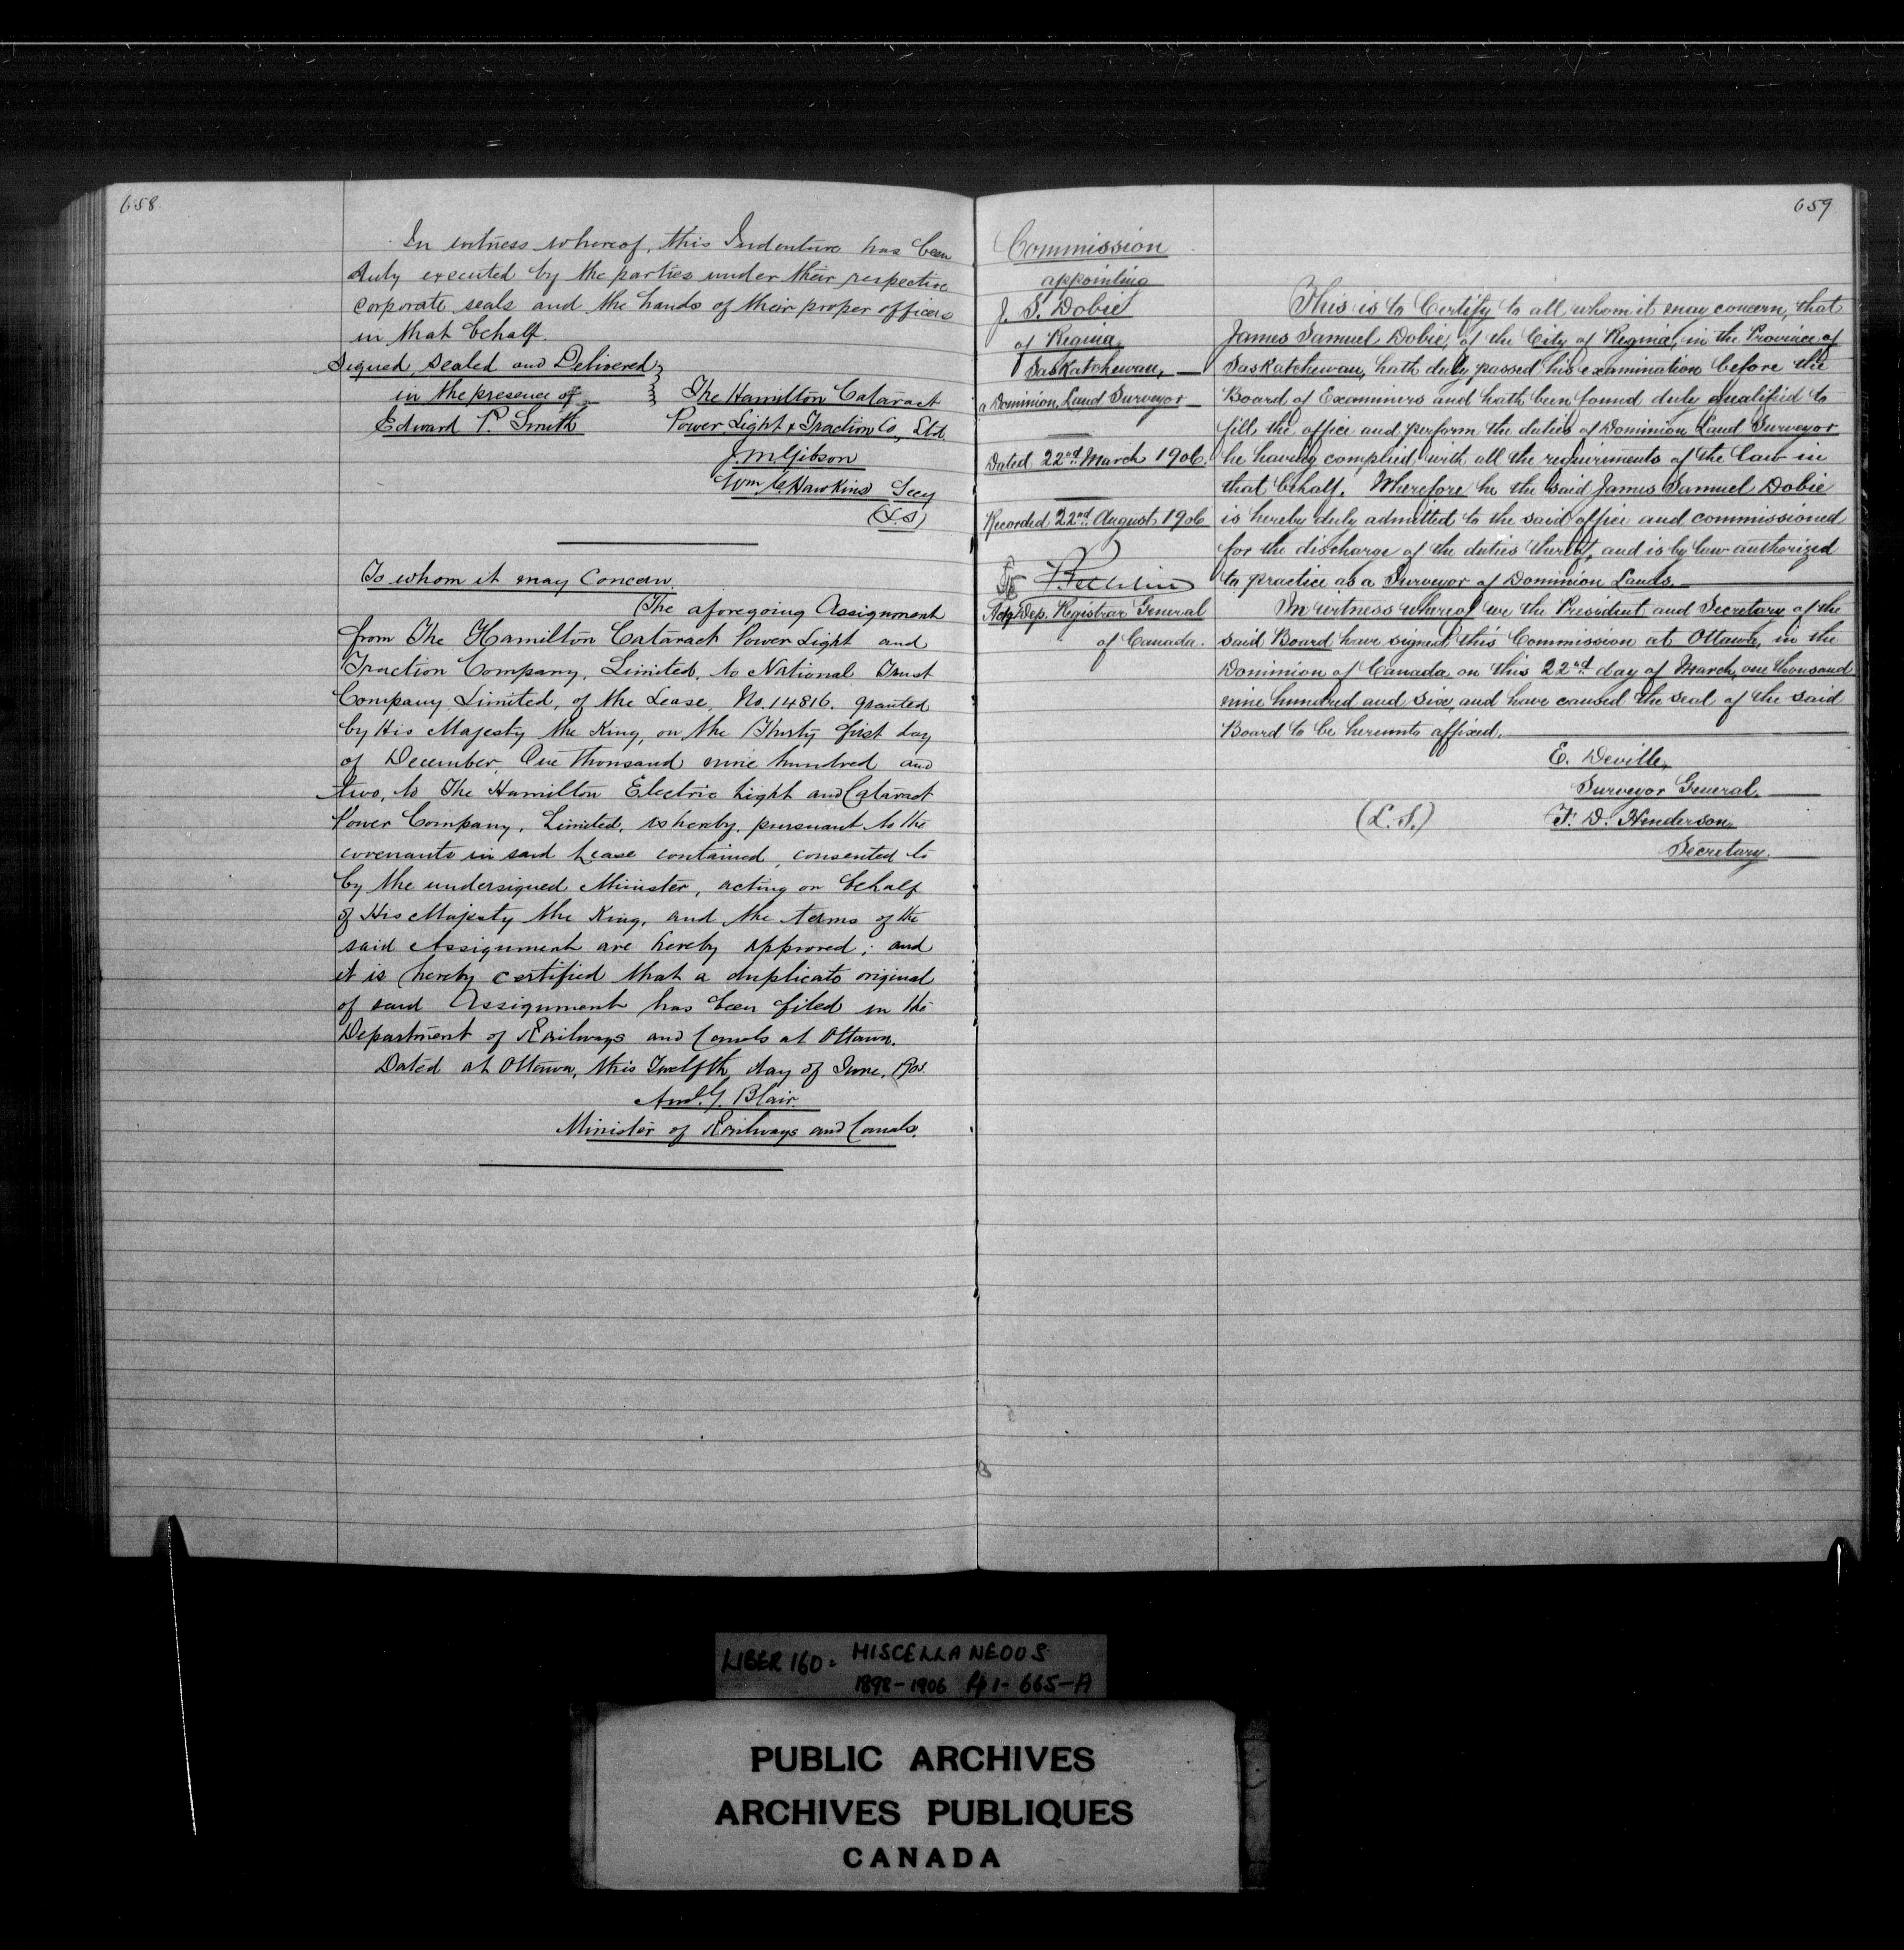 658
In witness whereof, this Indenture has been
duly executed by the parties under their respective
corporate seals and the hands of their proper officers
in that behalf.
Signed, Sealed and Delivered
in the presence of
Edward P. Smith
The Hamilton Cataract
Power, Light & Traction Co., Ltd
J. M. Gibson
Wm C. Hawkins Secy
(L.S)
To whom it may Concern
The aforegoing Assignment
from The Hamilton Cataract Power Light and
Traction Company, Limited, to National Trust
Company Limited, of the Lease, No. 14816. granted
by His Majesty the King, on the Thirty first day
of December, One thousand nine hundred and
two, to The Hamilton Electric Light and Cataract
Power Company, Limited, is hereby, pursuant to the
covenants in said Lease contained, consented to
by the undersigned Minister, acting on behalf
of His Majesty the King, and the terms of the
said Assignment are hereby approved; and
it is hereby certified that a duplicate original
of said Assignment has been filed in the
Department of Railways and Canals at Ottawa.
Dated at Ottawa, this Twelfth day of June,
And. G. Blair.
Minister of Railways and Canals.
659
Commission
appointing
J. S. Dobie
of Regina,
Saskatchewan,
a Dominion Land Surveyor
Dated 22nd March 1906.
Recorded 22nd August 1906
Actg Dep. Registrar General
of Canada.
This is to Certify to all whom it may concern, that
James Samuel Dobie, of the City of Regina, in the Province of
Saskatchewan, hath duly passed his examination before the
Board of Examiners and hath been found duly qualified to
fill the office and perform the duties of Dominion Land Surveyor
he having complied with all the requirements of the law in
that behalf. Wherefore he the said James Samuel Dobie
is hereby duly admitted to the said office and commissioned
for the discharge of the duties thereof, and is by law authorized
to practice as a Surveyor of Dominion Lands.
In witness whereof we the President and Secretary of the
said Board have signed this Commission at Ottawa, in the
Dominion of Canada on this 22nd day of March, one thousand
nine hundred and six, and have caused the seal of the said
Board to be hereunto affixed.
E. Deville,
Surveyor General.
(L.S.)
F. D. Henderson,
Secretary.
LIBER 160: MISCELLANEOUS
1898-1906 Pp 1-665-A
PUBLIC ARCHIVES
ARCHIVES PUBLIQUES
CANADA